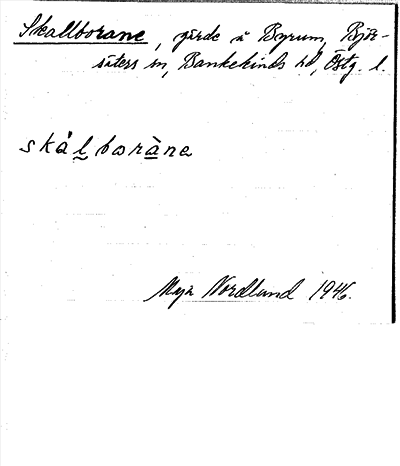 Skallborane, gärde å Byrum, Björ-
säters sn, Bankekinds hd, Östg. l.
skålboràne
Maja Nordlund 1946.